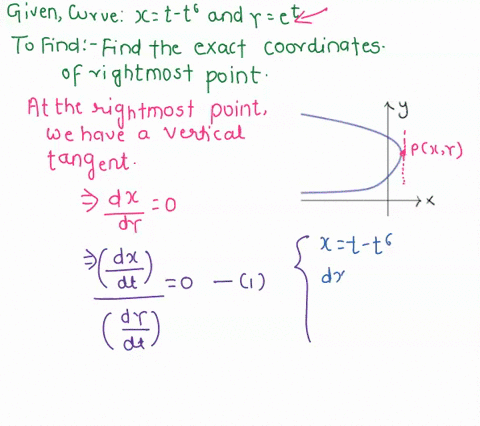 Given, Curve: x=t-t⁶ and y=e^t
To Find:- Find the exact coordinates
of rightmost point.
At the rightmost point,
we have a vertical
tangent.
⇒ dx/dy = 0
⇒ (dx/dt)/(dy/dt) = 0 —(1)
y
P(x,y)
x
{ x=t-t⁶
dx